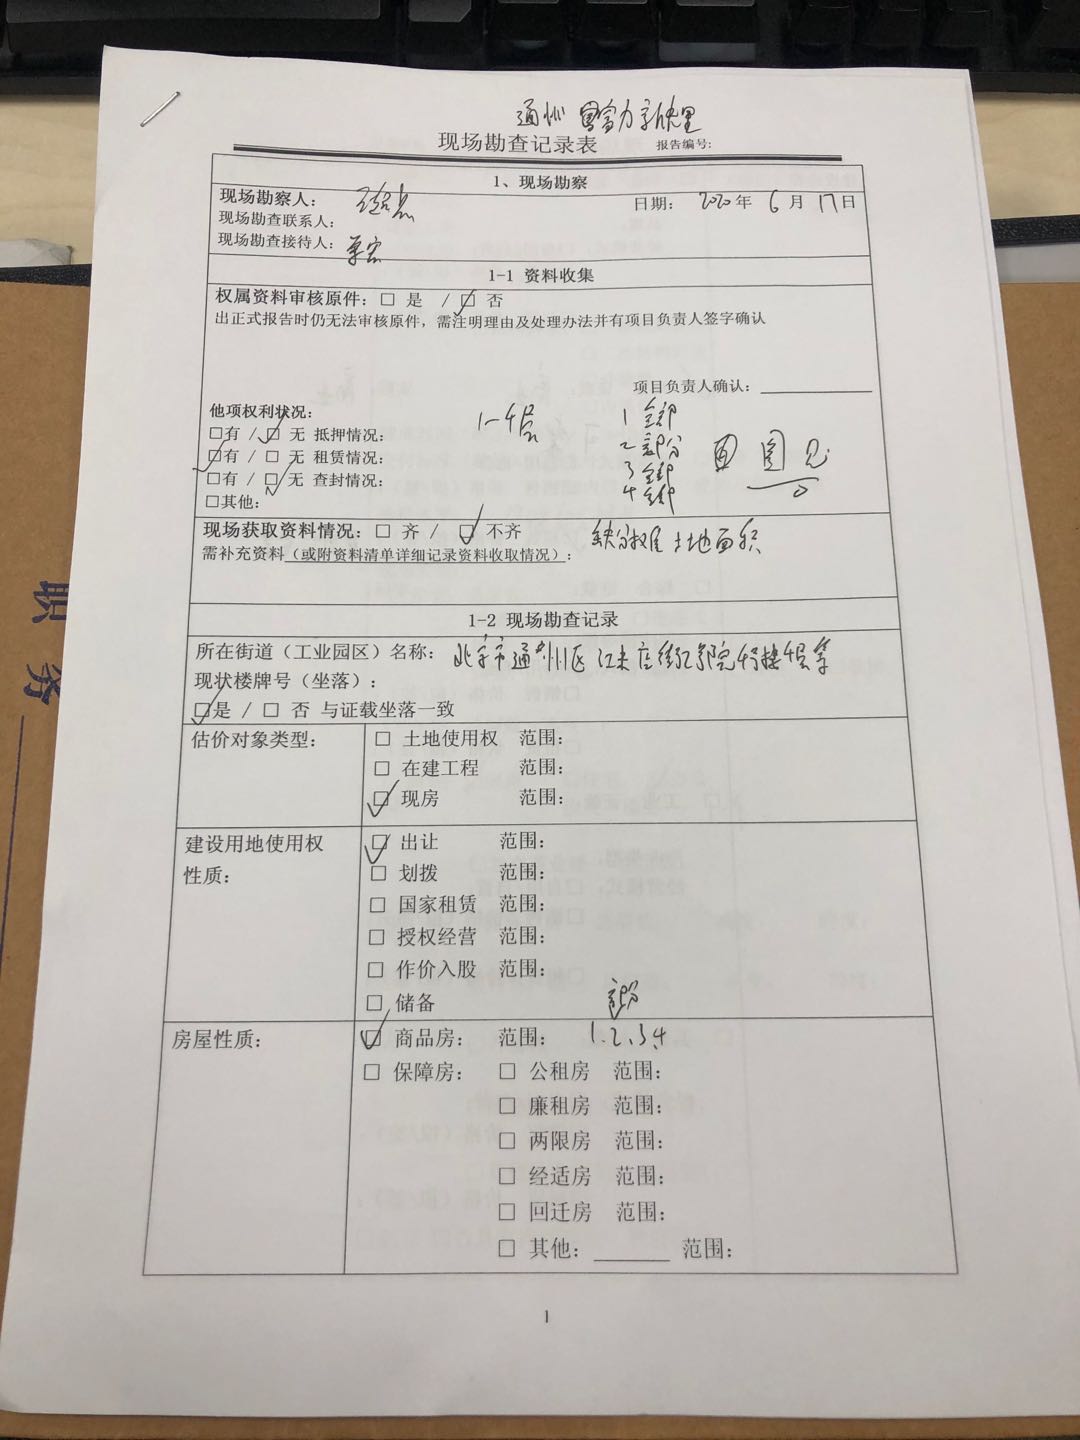 通州 富力新
现场勘查记录表
报告编号:
1、现场勘察
现场勘察人:
日期: 2020年 6 月 17日
现场勘查联系人:
现场勘查接待人:
1-1 资料收集
权属资料审核原件: □ 是 / ☑ 否
出正式报告时仍无法审核原件，需注明理由及处理办法并有项目负责人签字确认
项目负责人确认:
他项权利状况:
1-4层
1 全部
□有 / ☑ 无 抵押情况:
2 部分
☑有 / □ 无 租赁情况:
3 全部
□有 / ☑ 无 查封情况:
4 全部
□其他:
现场获取资料情况: □ 齐 / ☑ 不齐
土地面积
需补充资料(或附资料清单详细记录资料收取情况):
1-2 现场勘查记录
所在街道（工业园区）名称: 北京市通州区
现状楼牌号（坐落）:
☑是 / □ 否 与证载坐落一致
估价对象类型:
□ 土地使用权 范围:
□ 在建工程 范围:
☑ 现房 范围:
建设用地使用权
性质:
☑ 出让 范围:
□ 划拨 范围:
□ 国家租赁 范围:
□ 授权经营 范围:
□ 作价入股 范围:
□ 储备
部分
房屋性质:
☑ 商品房: 范围: 1.2.3.4
□ 保障房: □ 公租房 范围:
□ 廉租房 范围:
□ 两限房 范围:
□ 经适房 范围:
□ 回迁房 范围:
□ 其他: 范围:
1
职务